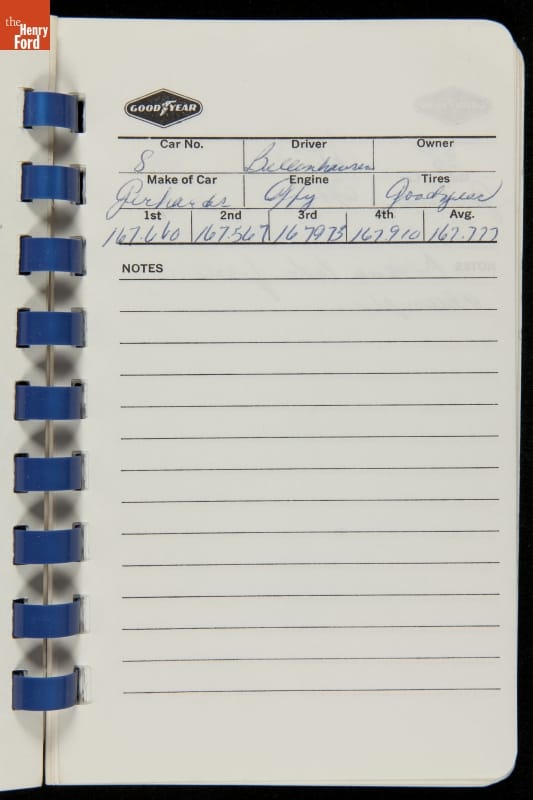 the Henry Ford
GOODYEAR
Car No. Driver Owner
8 Bettenhausen
Make of Car Engine Tires
Gerhardt Offy Goodyear
1st 2nd 3rd 4th Avg.
167.660 167.567 167.973 167.910 167.777
NOTES